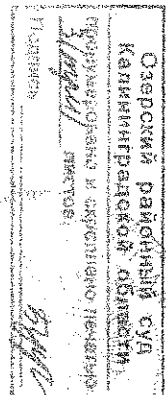 Озерский районный суд
Калининградской области
пронумеровано и скреплено печатью
листов.
Подпись